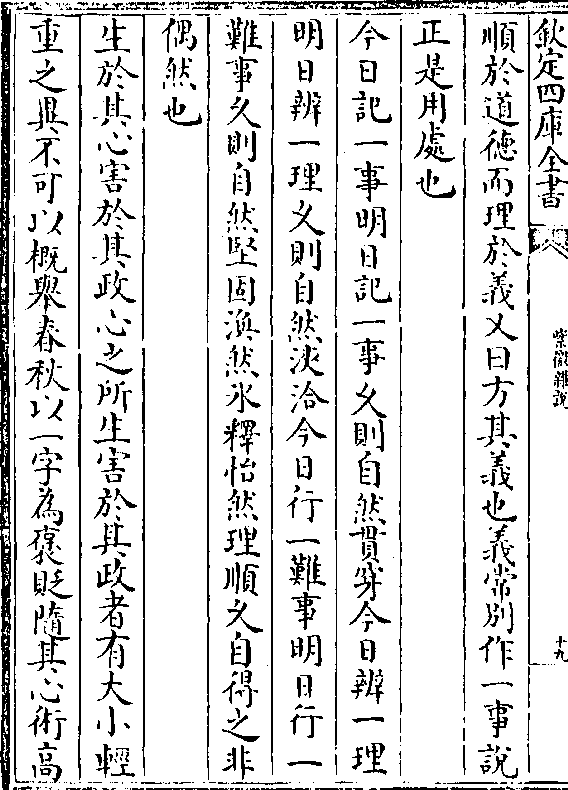 欽定四庫全書
紫微雜說
十九
順於道德而理於義又曰方其義也義常別作一事說
正是用處也
今日記一事明日記一事久則自然貫穿今日辨一理
明日辨一理久則自然浹洽今日行一難事明日行一
難事久則自然堅固渙然冰釋怡然理順久自得之非
偶然也
生於其心害於其政心之所生害於其政者有大小輕
重之異不可以概舉春秋以一字為褒貶隨其心術高